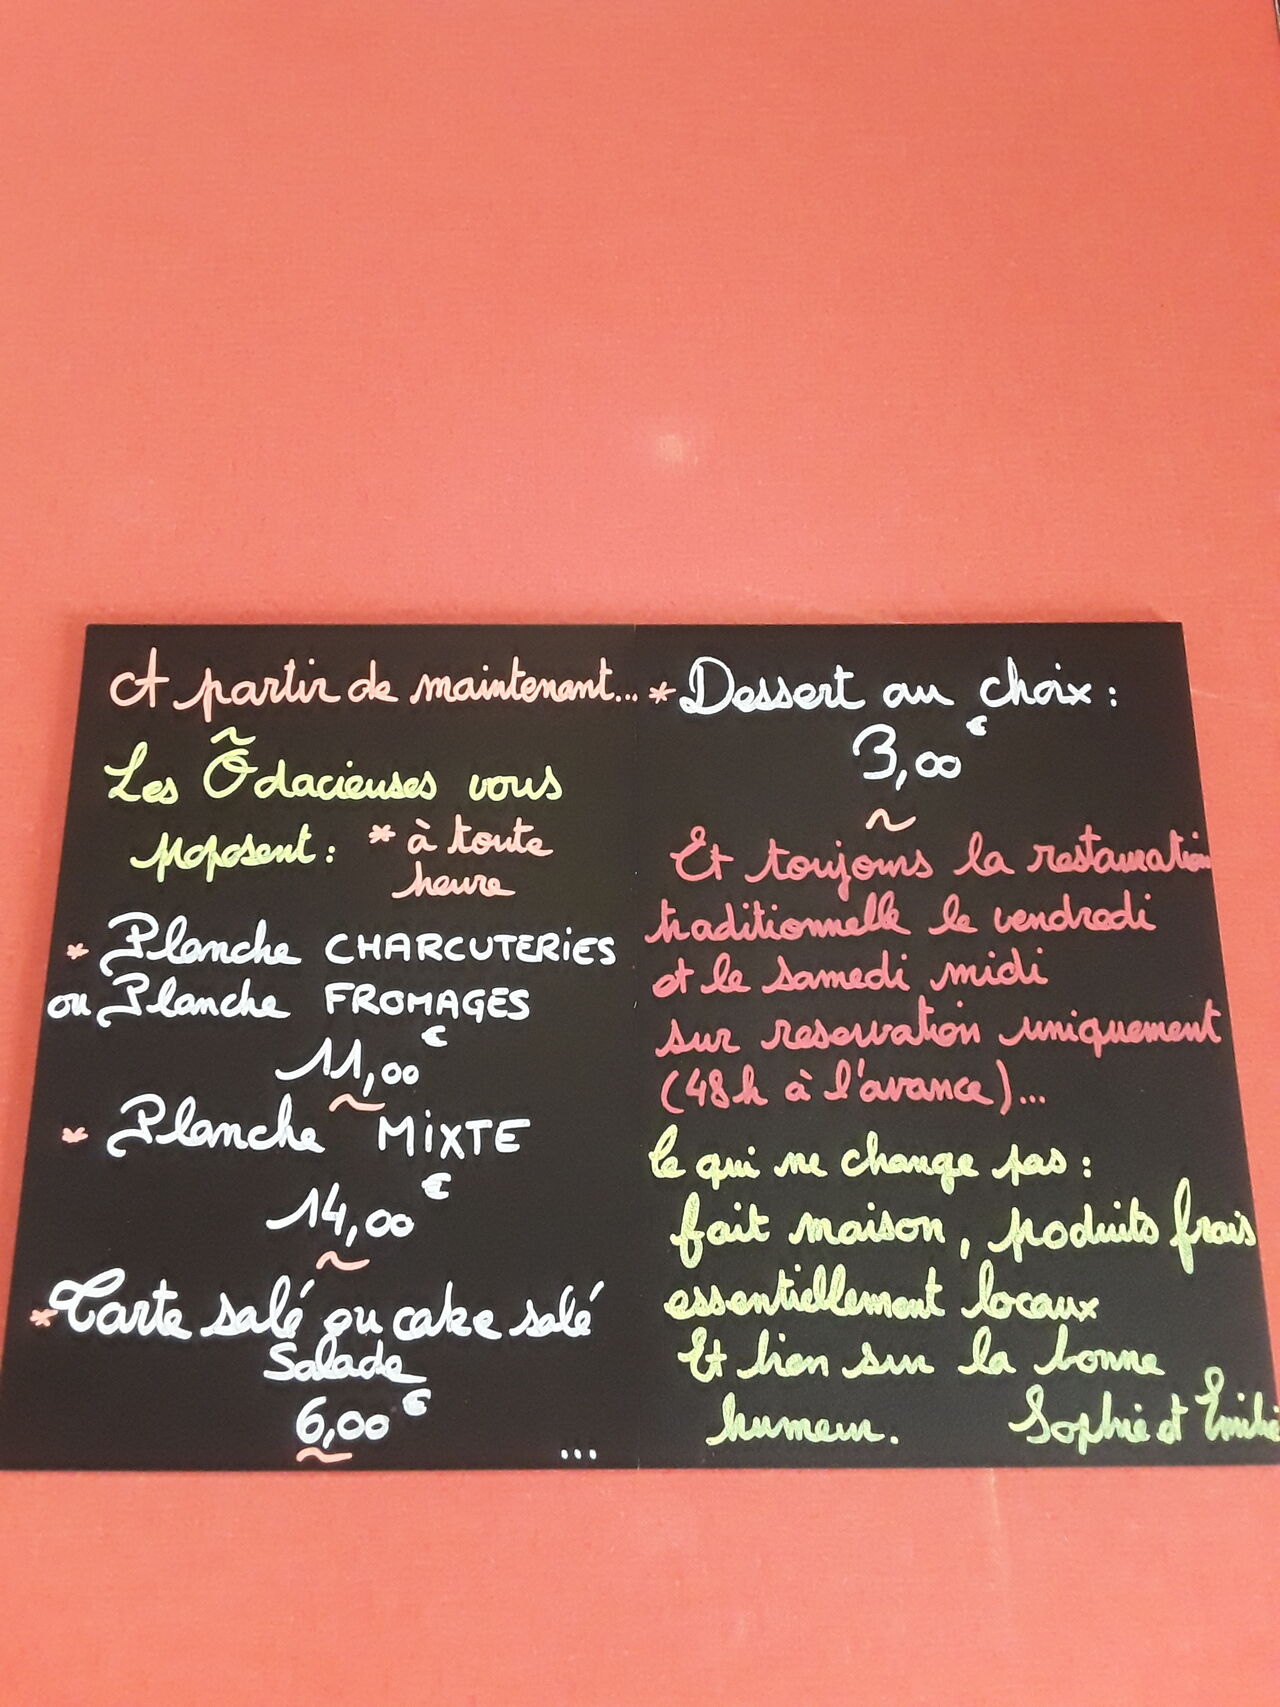 A partir de maintenant...
Les Ôdacieuses vous
proposent : * à toute
heure
* Planche CHARCUTERIES
ou Planche FROMAGES
11,00 €
* Planche MIXTE
14,00 €
* Tarte salé ou cake salé
Salade
6,00 €
...
* Dessert au choix :
3,00 €
Et toujours la restauration
traditionnelle le vendredi
et le samedi midi
sur reservation uniquement
(48h à l'avance)...
Ce qui ne change pas :
fait maison, produits frais
essentiellement locaux
Et bien sur la bonne
humeur. Sophie et Emilie